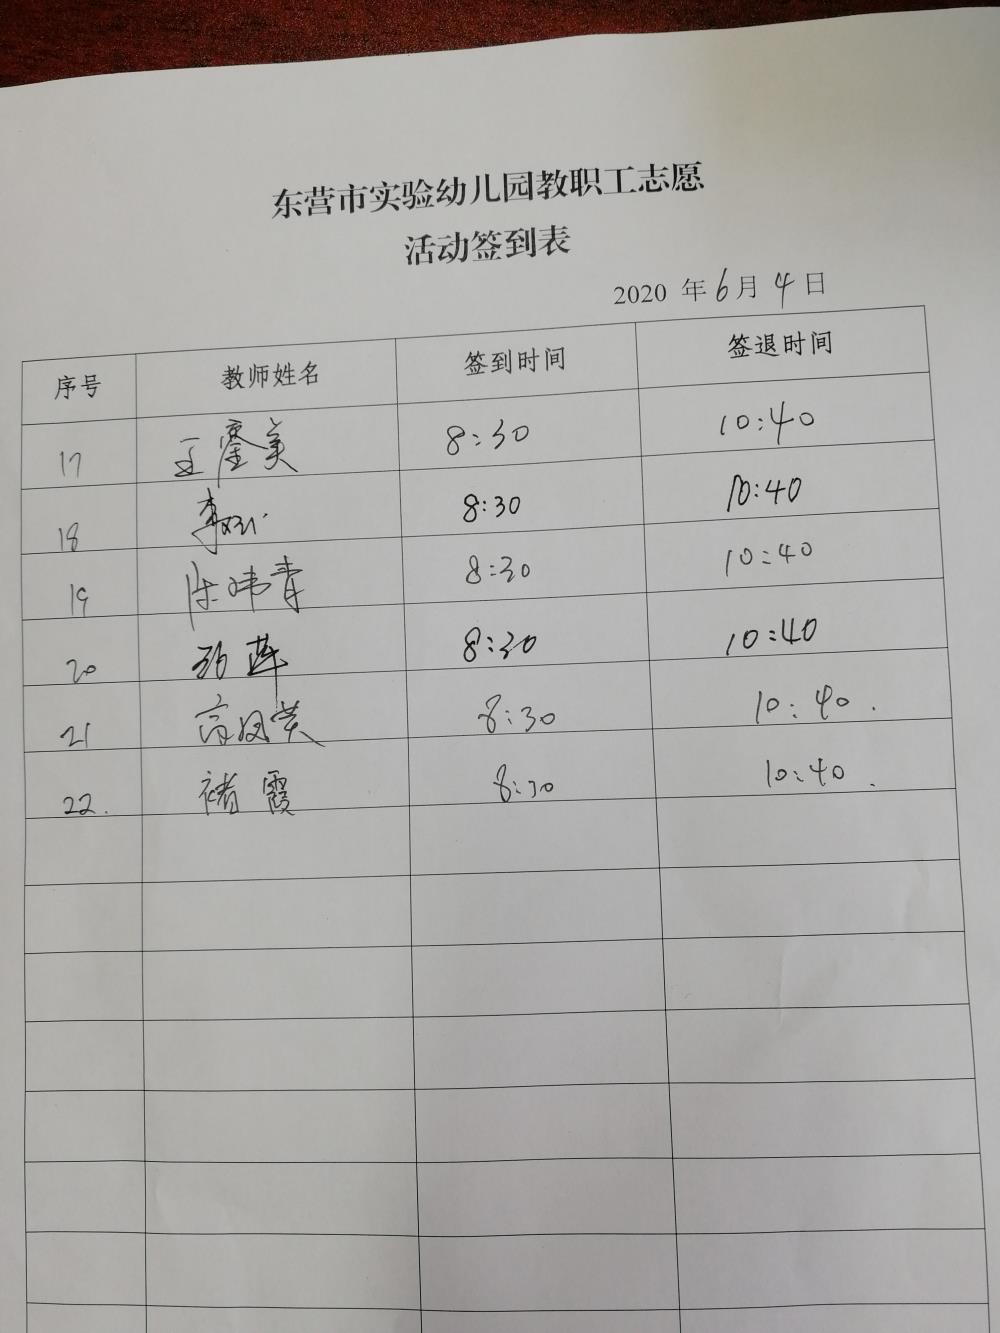 东营市实验幼儿园教职工志愿
活动签到表
2020 年 6 月 4 日
序号 教师姓名 签到时间 签退时间
17 王 美 8:30 10:40
18 李 8:30 10:40
19 陈玮青 8:30 10:40
20 莲 8:30 10:40
21 高凤英 8:30 10:40.
22. 褚霞 8:30 10:40.